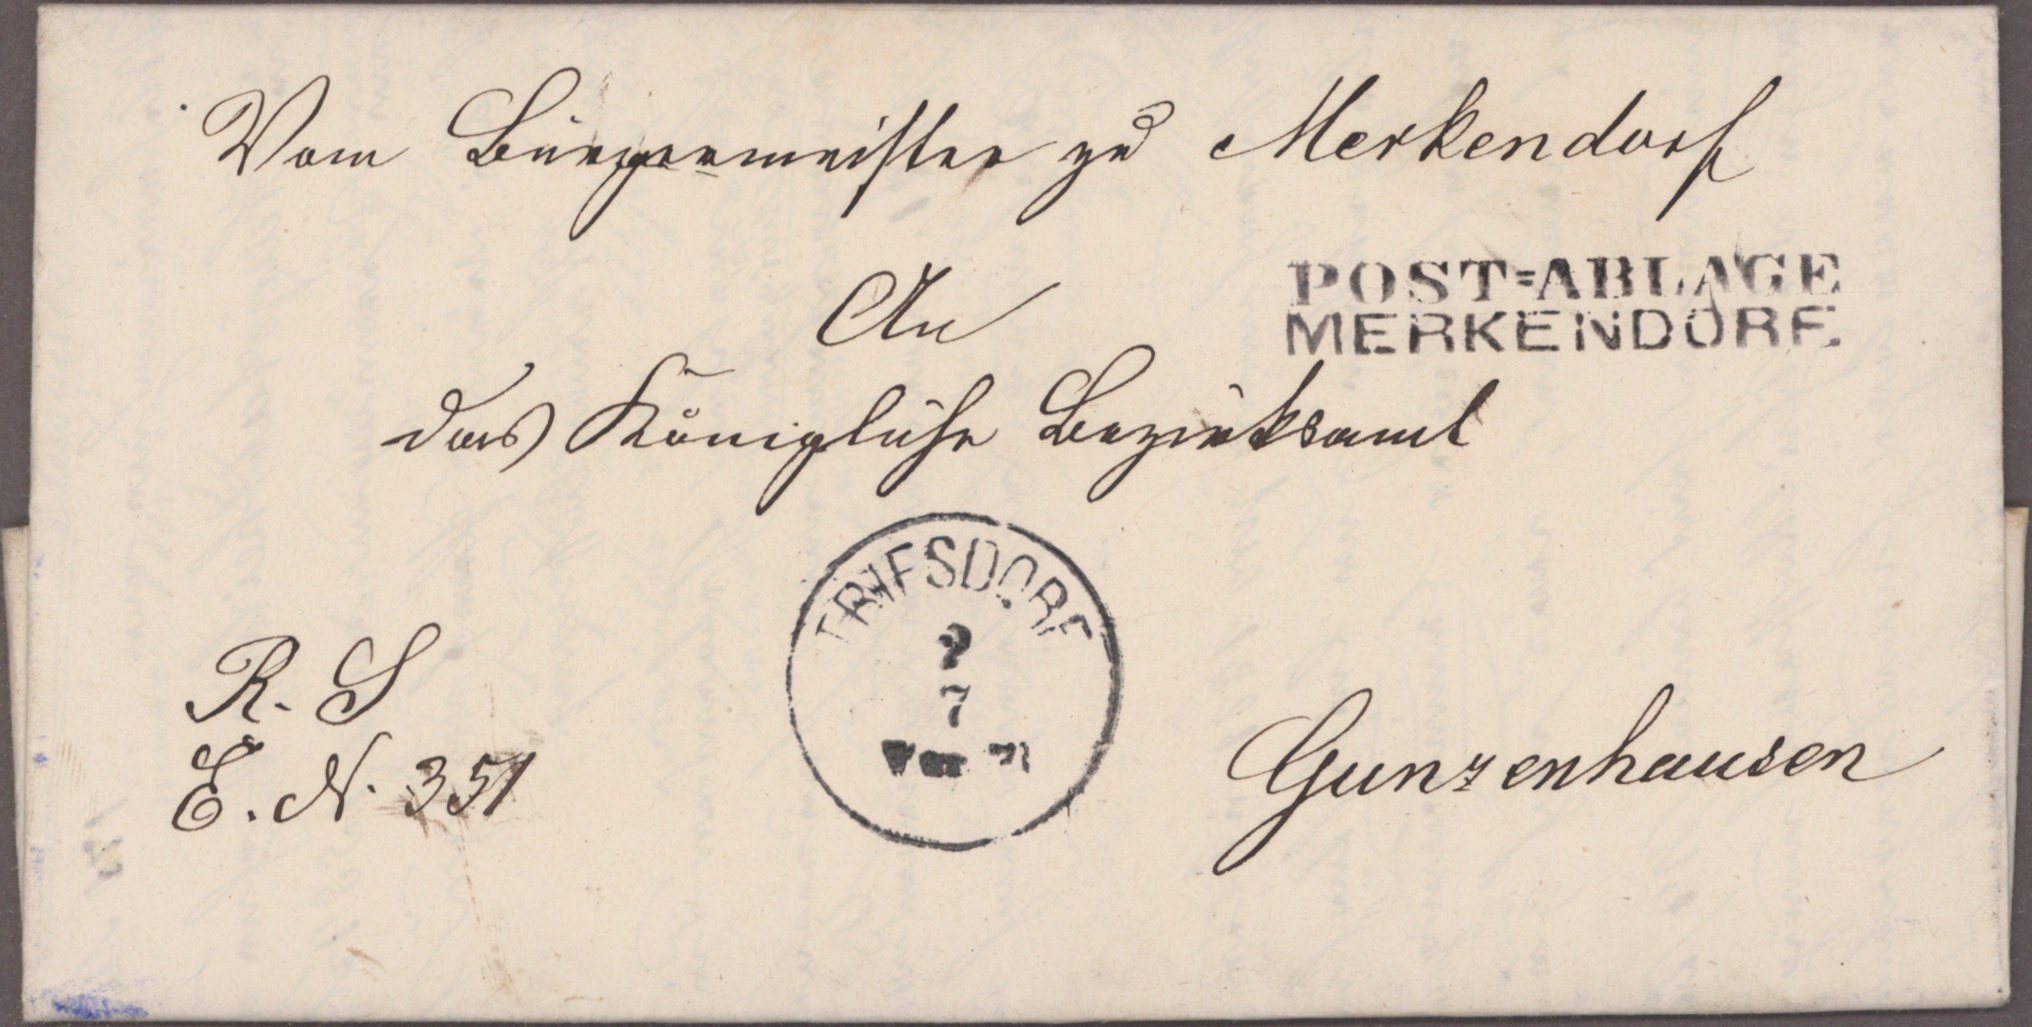 Vom Bürgermeister zu Merkendorf
An
POST=ABLAGE
MERKENDORF.
das Königliche Bezirksamt
TRIESDORF
7
R. S
E. N. 351
Gunzenhausen